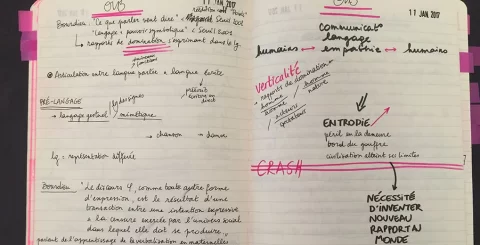 OUB
11 JAN 2017
Bourdieu "Ce que parler veut dire"
"Langage & pouvoir symbolique" (Seuil 2001
↳ rapports de domination s'expriment dans la lg.
Articulation entre langue parlée & langue écrite
PRÉ-LANGAGE
→ langage gestuel / mimétique
→ chanson → danse
lg = représentation différée
Bourdieu "Le discours, comme toute autre forme
d'expression, est le résultat d'une
transaction entre une intention expressive
& la censure exercée par l'univers social
dans lequel elle doit se produire"
parlent de l'apprentissage de la verbalisation en maternelles
OUB
11 JAN 2017
communicat°
langage
humains ↔ empathie ↔ humains
verticalité
rapports de domination
homme / homme
homme / nature
acteurs / spectateurs
ENTROPIE
péril en la demeure
bord du gouffre
civilisation atteint ses limites
CRASH
NÉCESSITÉ
D'INVENTER
NOUVEAU
RAPPORT AU
MONDE